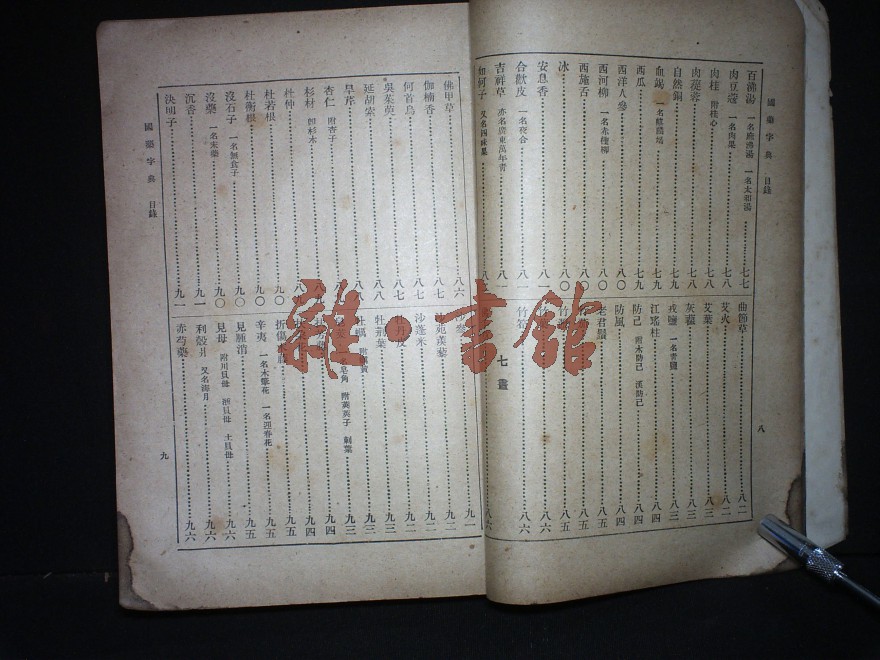 國藥字典 目錄
八
百沸湯 一名麻沸湯 一名太和湯 七七
肉豆蔻 一名肉果 七八
肉桂 附桂心 七八
肉蓯蓉 七八
自然銅 七九
血竭 七九
西瓜 七九
西洋人參 八〇
西河柳 一名赤檉柳 八〇
西施舌 八〇
冰 八〇
安息香 八一
合歡皮 一名夜合 八一
吉祥草 亦名廣東萬年青
如何子 又名四味果
曲節草 八二
艾火 八二
艾葉 八三
灰藋 八三
戎鹽 一名青鹽 八三
江瑤柱 八四
防己 附木防己 漢防己 八四
防風 八四
老君鬚 八五
八五
竹 八五
竹 八六
竹 八六
七畫
佛甲草 八六
伽楠香 八七
何首烏 八七
吳茱萸 八七
延胡索 八八
旱芹 八八
杏仁 附杏子
杉材 即杉木
杜仲
杜若根 九〇
杜衡根 九〇
沒石子 一名無食子 九〇
沒藥 一名末藥 九〇
沉香 九一
決明子 九一
參 九一
苑蒺藜 九二
沙蓬米 九二
牡丹皮 九二
牡荊葉 九二
牡蠣 九三
皂角 附黃英子 刺葉 九四
九四
九五
折傷 九五
辛夷 一名木筆花 一名迎春花 九五
見腫消 九五
貝母 附川貝母 浙貝母 土貝母 九六
利殼 又名海月 九六
赤芍藥 九六
國藥字典 目錄
九
雜書館